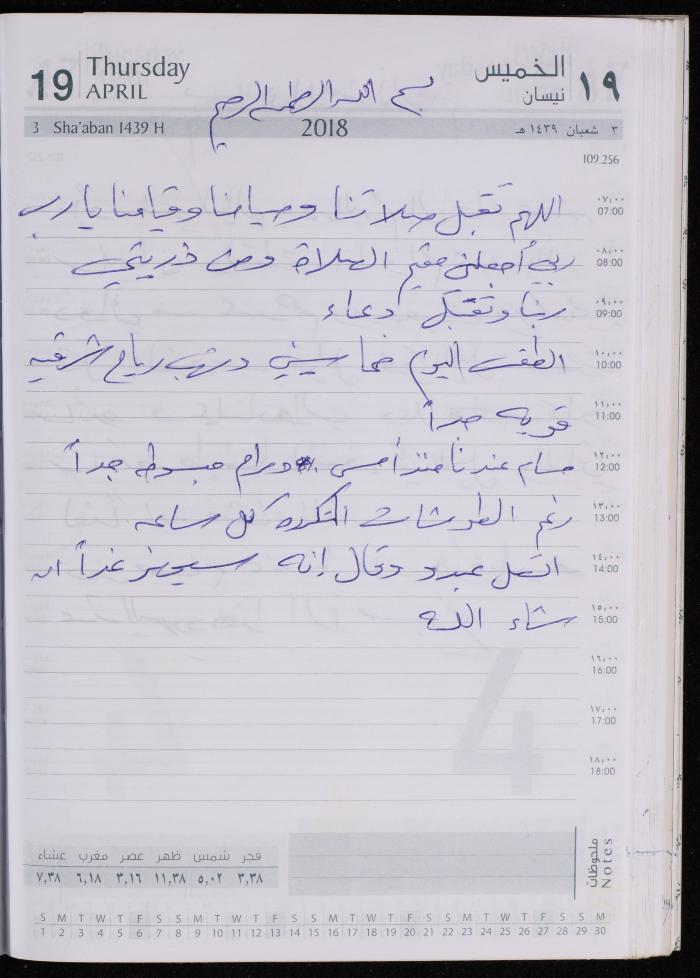 19 Thursday APRIL
الخميس ١٩ نيسان
بسم الله الرحمن الرحيم
3 Sha'aban 1439 H 2018 ٣ شعبان ١٤٣٩ هـ
109.256
اللهم تقبل صلاتنا وصيامنا وقيامنا يا رب
٠٧,٠٠ 07:00
ربي أجعلني مقيم الصلاة ومن ذريتي
٠٨,٠٠ 08:00
ربنا وتقبل دعاء
٠٩,٠٠ 09:00
الطقس اليوم خماسيني ورياح شرقيه
١٠,٠٠ 10:00
قويه جداً
١١,٠٠ 11:00
عندنا منذ أمس مبسوطه جداً
١٢,٠٠ 12:00
رغم الطوشات المتكرره كل ساعه
١٣,٠٠ 13:00
اتصل عبدو وقال إنه غداً ان
١٤,٠٠ 14:00
شاء الله
١٥,٠٠ 15:00
١٦,٠٠ 16:00
١٧,٠٠ 17:00
١٨,٠٠ 18:00
4
ملحوظات Notes
فجر شمس ظهر عصر مغرب عشاء
٣,٣٨ ٥,٠٢ ١١,٣٨ ٣,١٦ ٦,١٨ ٧,٣٨
S M T W T F S S M T W T F S S M T W T F S S M T W T F S S M
1 2 3 4 5 6 7 8 9 10 11 12 13 14 15 16 17 18 19 20 21 22 23 24 25 26 27 28 29 30